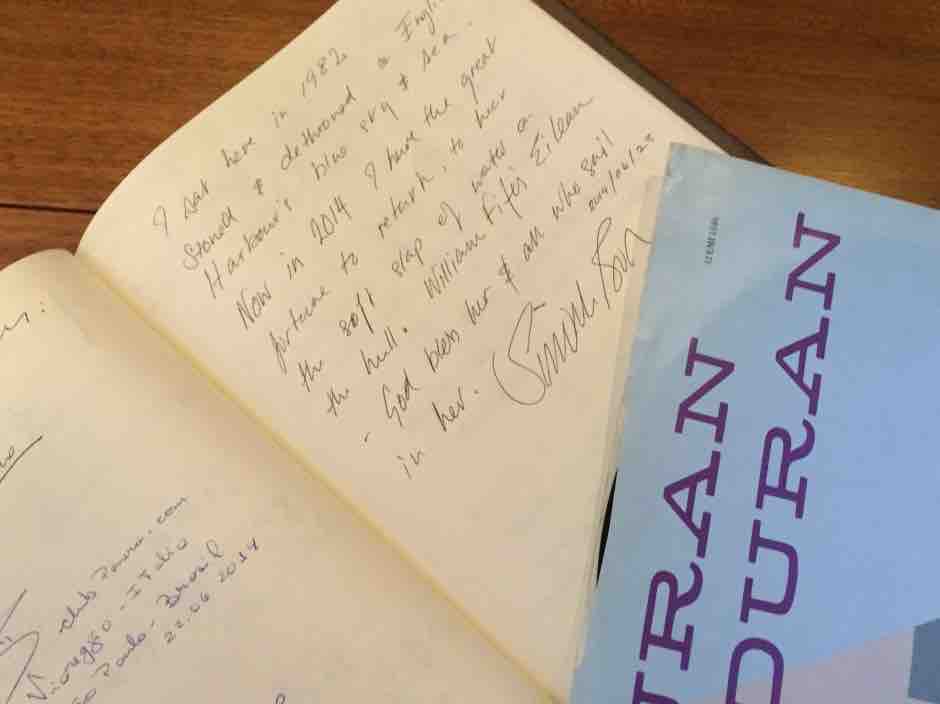 I sat here in 1982
Stoned & dethroned in Engl
Harbour's blue sky & sea.
Now in 2014 I have the great
fortune to return, to hear
the soft slap of water on
the hull. William Fife's Eilean
- God bless her & all who sail
in her. Simon
2014/06/23
club
Viareggio - Italia
Paulo - Brasil
22.06 2014
URAN
DURAN